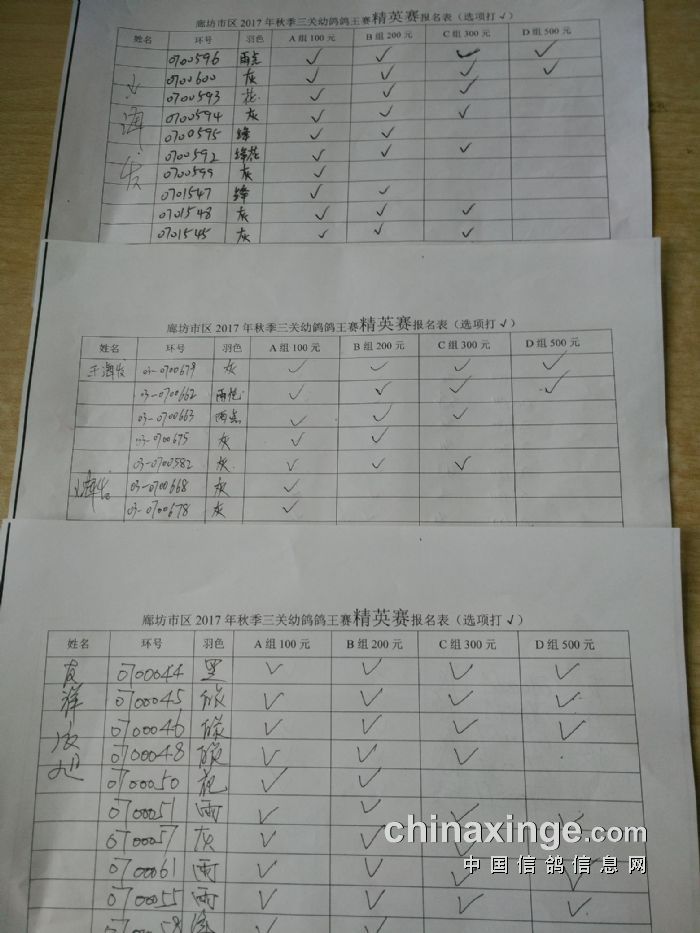 廊坊市区 2017 年秋季三关幼鸽鸽王赛精英赛报名表（选项打 √）
姓名 环号 羽色 A 组 100 元 B 组 200 元 C 组 300 元 D 组 500 元
0700596 雨点 ✓ ✓ ✓ ✓
0700600 灰 ✓ ✓ ✓ ✓
0700593 花 ✓ ✓ ✓
0700594 灰 ✓ ✓ ✓
0700595 绛 ✓ ✓
0700592 绛花 ✓ ✓ ✓
0700599 灰 ✓
0701547 绛 ✓ ✓
0701548 灰 ✓ ✓ ✓
0701545 灰 ✓ ✓ ✓
廊坊市区 2017 年秋季三关幼鸽鸽王赛精英赛报名表（选项打 √）
姓名 环号 羽色 A 组 100 元 B 组 200 元 C 组 300 元 D 组 500 元
王海发 03-0700679 灰 ✓ ✓ ✓ ✓
03-0700662 雨花 ✓ ✓ ✓ ✓
03-0700663 雨点 ✓ ✓ ✓
03-0700675 灰 ✓ ✓
03-0700582 灰 ✓ ✓ ✓
03-0700668 灰 ✓
03-0700678 灰 ✓
廊坊市区 2017 年秋季三关幼鸽鸽王赛精英赛报名表（选项打 √）
姓名 环号 羽色 A 组 100 元 B 组 200 元 C 组 300 元 D 组 500 元
0700044 黑 ✓ ✓ ✓ ✓
0700045 ✓ ✓ ✓ ✓
0700046 ✓ ✓ ✓ ✓
0700048 ✓ ✓ ✓
0700050 花 ✓ ✓
0700051 雨 ✓ ✓ ✓ ✓
0700057 灰 ✓ ✓ ✓
0700061 雨 ✓ ✓ ✓ ✓
0700055 雨 ✓ ✓ ✓ ✓
chinaxinge.com
中国信鸽信息网